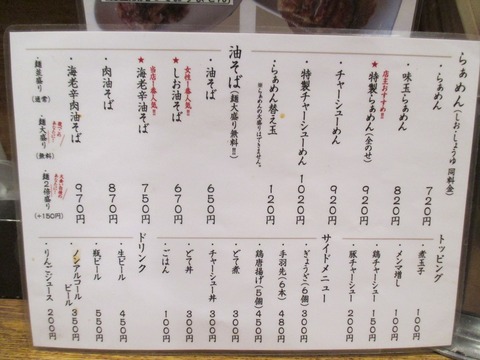 らぁめん(しお・しょうゆ 同料金)
・らぁめん 720円
・味玉らぁめん 820円
店主おすすめ!!
★特製らぁめん(全のせ) 920円
・チャーシューめん 920円
・特製チャーシューめん 1020円
・らぁめん替え玉 120円
※らぁめんの大盛りはできません。
油そば(麺大盛り無料!!)
・油そば 650円
女性一番人気!!
★しお油そば 670円
当店一番人気!!
★海老辛油そば 750円
・肉油そば 870円
・海老辛肉油そば 970円
・麺並盛り(通常)
・麺大盛り(無料)
・麺2倍盛り(+150円)
トッピング
・煮玉子 100円
・メンマ増し 100円
・鶏チャーシュー 200円
・豚チャーシュー 200円
サイドメニュー
・ぎょうざ(6個) 300円
・手羽先(6本) 480円
・鶏唐揚げ(5個) 450円
・どて煮 300円
・チャーシュー丼 300円
・どて丼 300円
・ごはん 100円
ドリンク
・生ビール 450円
・瓶ビール 550円
・ノンアルコールビール 350円
・りんごジュース 200円